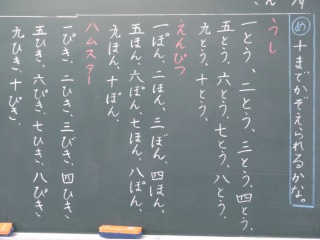 め 十までかぞえられるかな。
うし
一とう、二とう、三とう、四とう、
五とう、六とう、七とう、八とう、
九とう、十とう。
えんぴつ
一ぽん、二ほん、三ぼん、四ほん、
五ほん、六ぽん、七ほん、八ぽん、
九ほん、十ぽん。
ハムスター
一ぴき、二ひき、三びき、四ひき
五ひき、六ぴき、七ひき、八ぴき
九ひき、十ぴき。